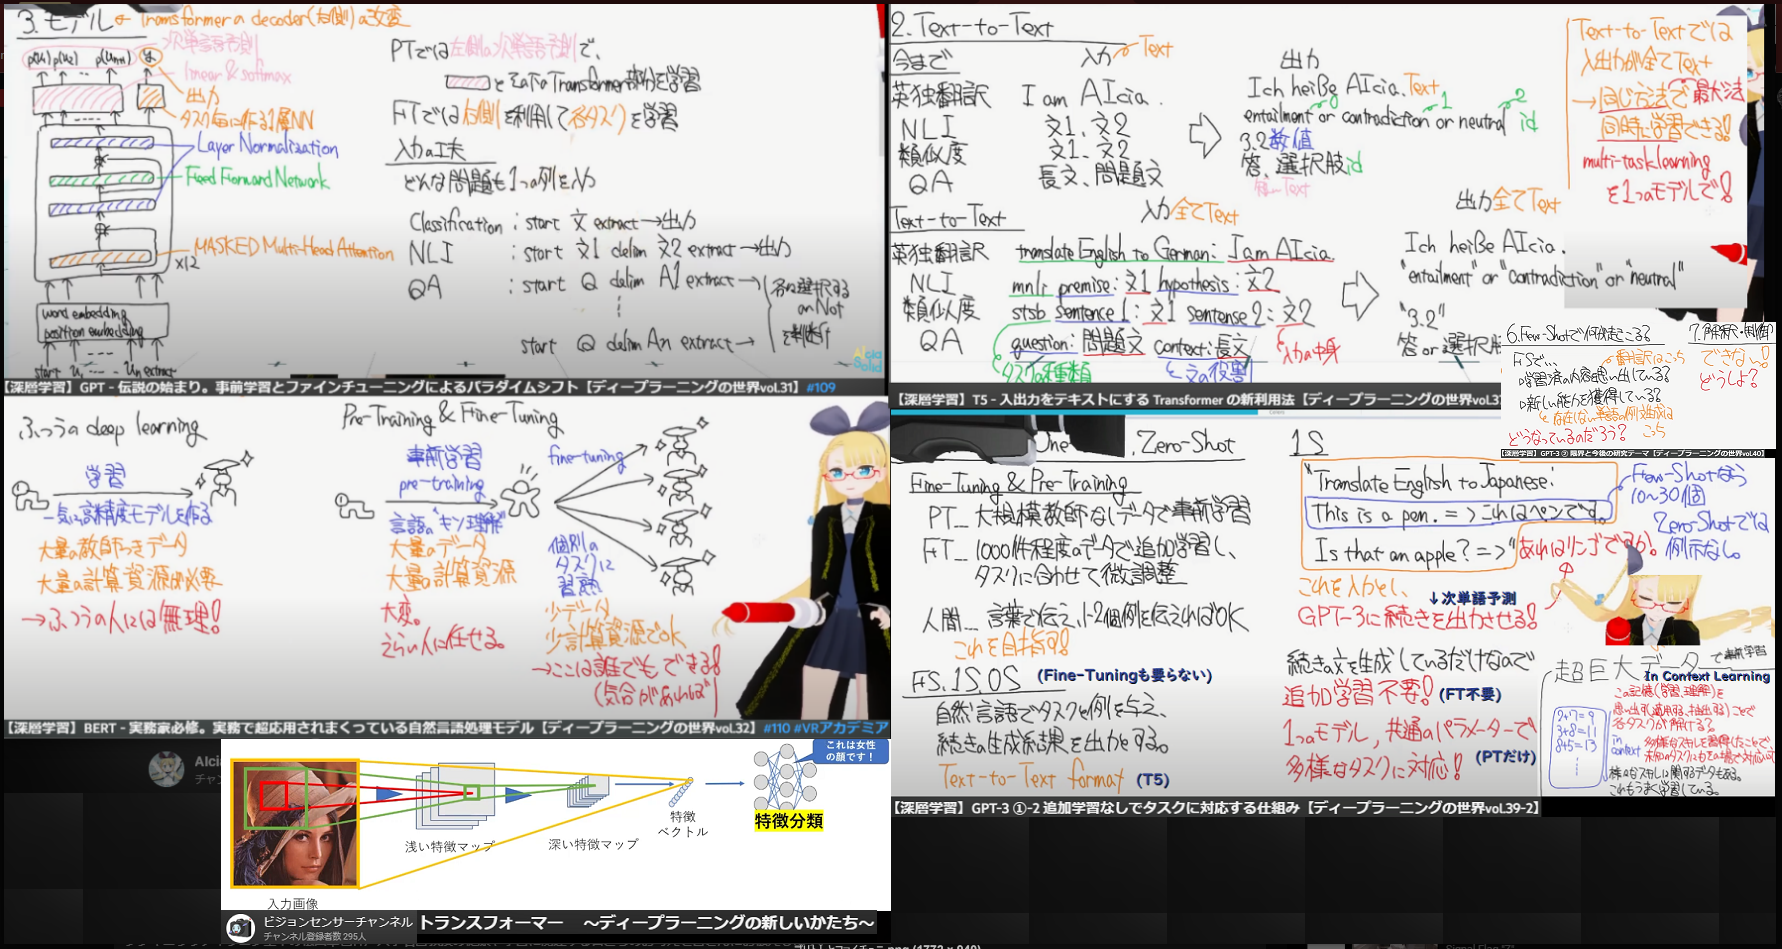 3.モデル ← Transformerのdecoder(右側)の改変
次単語予測
linear & softmax
出力
タスク毎に作る1層NN
Layer Normalization
Feed Forward Network
MASKED Multi-Head Attention
×12
word embedding
position embedding
PTでは左側の次単語予測で、
とそれ以下のTransformer部分を学習
FTでは右側を利用して各タスクを学習
入力の工夫
どんな問題も1つの列を入力
Classification : start 文 extract → 出力
NLI : start 文1 delim 文2 extract → 出力
QA : start Q delim A1 extract →
start Q delim An extract →
【深層学習】GPT - 伝説の始まり。事前学習とファインチューニングによるパラダイムシフト【ディープラーニングの世界vol.31】#109
2. Text-to-Text
今まで 入力 ← Text 出力
英独翻訳 I am AIcia. Ich heiße AIcia. Text
NLI 文1、文2 entailment or contradiction or neutral id
0 1 2
類似度 文1、文2 3.2 数値
QA 長文、問題文 答、選択肢id
Text-to-Text 入力 全てText 出力 全てText
英独翻訳 translate English to German: I am AIcia. Ich heiße AIcia.
NLI mnli premise: 文1 hypothesis: 文2 "entailment" or "contradiction" or "neutral"
類似度 stsb sentence 1: 文1 sentense 2: 文2 "3.2"
QA question: 問題文 context: 長文 答 or 選択肢
タスクの種類 文の役割 入力の中身
Text-to-Textでは
入出力が全てText
→同じ方法で 最大法
同時に学習できる!
multi-task learning
を1つのモデルで!
【深層学習】T5 - 入出力をテキストにする Transformer の新利用法【ディープラーニングの世界vol.3
6.Few-Shotで何が起こる?
FSで… 翻訳はこっち
▷学習済の内容を思い出している?
▷新しい能力を獲得している?
存在しない単語の例文作成は
こっち
どうなっているのだろう?
7.解釈・制御
できない!
どうしよ?
【深層学習】GPT-3 ② 限界と今後の研究テーマ【ディープラーニングの世界vol.40】
ふつうのdeep learning
学習
一気に高精度モデルを作る
大量の教師つきデータ
大量の計算資源が必要
→ふつうの人には無理!
Pre-Training & Fine-Tuning
事前学習
pre-training
言語の"キソ理解"
大量のデータ
大量の計算資源
大変。
えらい人に任せる。
fine-tuning
個別の
タスクに
習熟
少データ
少計算資源でOK
→ここは誰でもできる!
(気合があれば)
【深層学習】BERT - 実務家必修。実務で超応用されまくっている自然言語処理モデル【ディープラーニングの世界vol.32】#110 #VRアカデミア
One Zero-Shot
Fine-Tuning & Pre-Training
PT… 大規模教師なしデータで事前学習
FT… 1000件程度のデータで追加学習し、
タスクに合わせて微調整
人間… 言葉で伝え、1-2個例を伝えればOK
これを目指す!
FS, 1S, 0S (Fine-Tuningも要らない)
自然言語でタスクや例を与え、
続きの生成結果を出力とする。
Text-to-Text format (T5)
1S
"Translate English to Japanese:
This is a pen. => これはペンです。
Is that an apple? =>" あれはリンゴですか?
Few-Shotなら
10~30個
Zero-Shotでは
例示なし。
これを入力とし、
↓次単語予測
GPT-3に続きを出力させる!
続きの文を生成しているだけなので
追加学習不要! (FT不要)
1つのモデル, 共通のパラメーターで
多様なタスクに対応! (PTだけ)
超巨大データで事前学習
In Context Learning
2+7=9
3+8=11
8+5=13
in context
この記憶(学習,理解)を
思い出す(適用する,抽出する)ことで
各タスクが解ける?
様々なスキルに関するデータもある。
これもうまく学習している。
【深層学習】GPT-3 ①-2 追加学習なしでタスクに対応する仕組み【ディープラーニングの世界vol.39-2】
これは女性
の顔です！
入力画像
浅い特徴マップ
深い特徴マップ
特徴
ベクトル
特徴分類
ビジョンセンサーチャンネル
チャンネル登録者数 295人
トランスフォーマー ～ディープラーニングの新しいかたち～